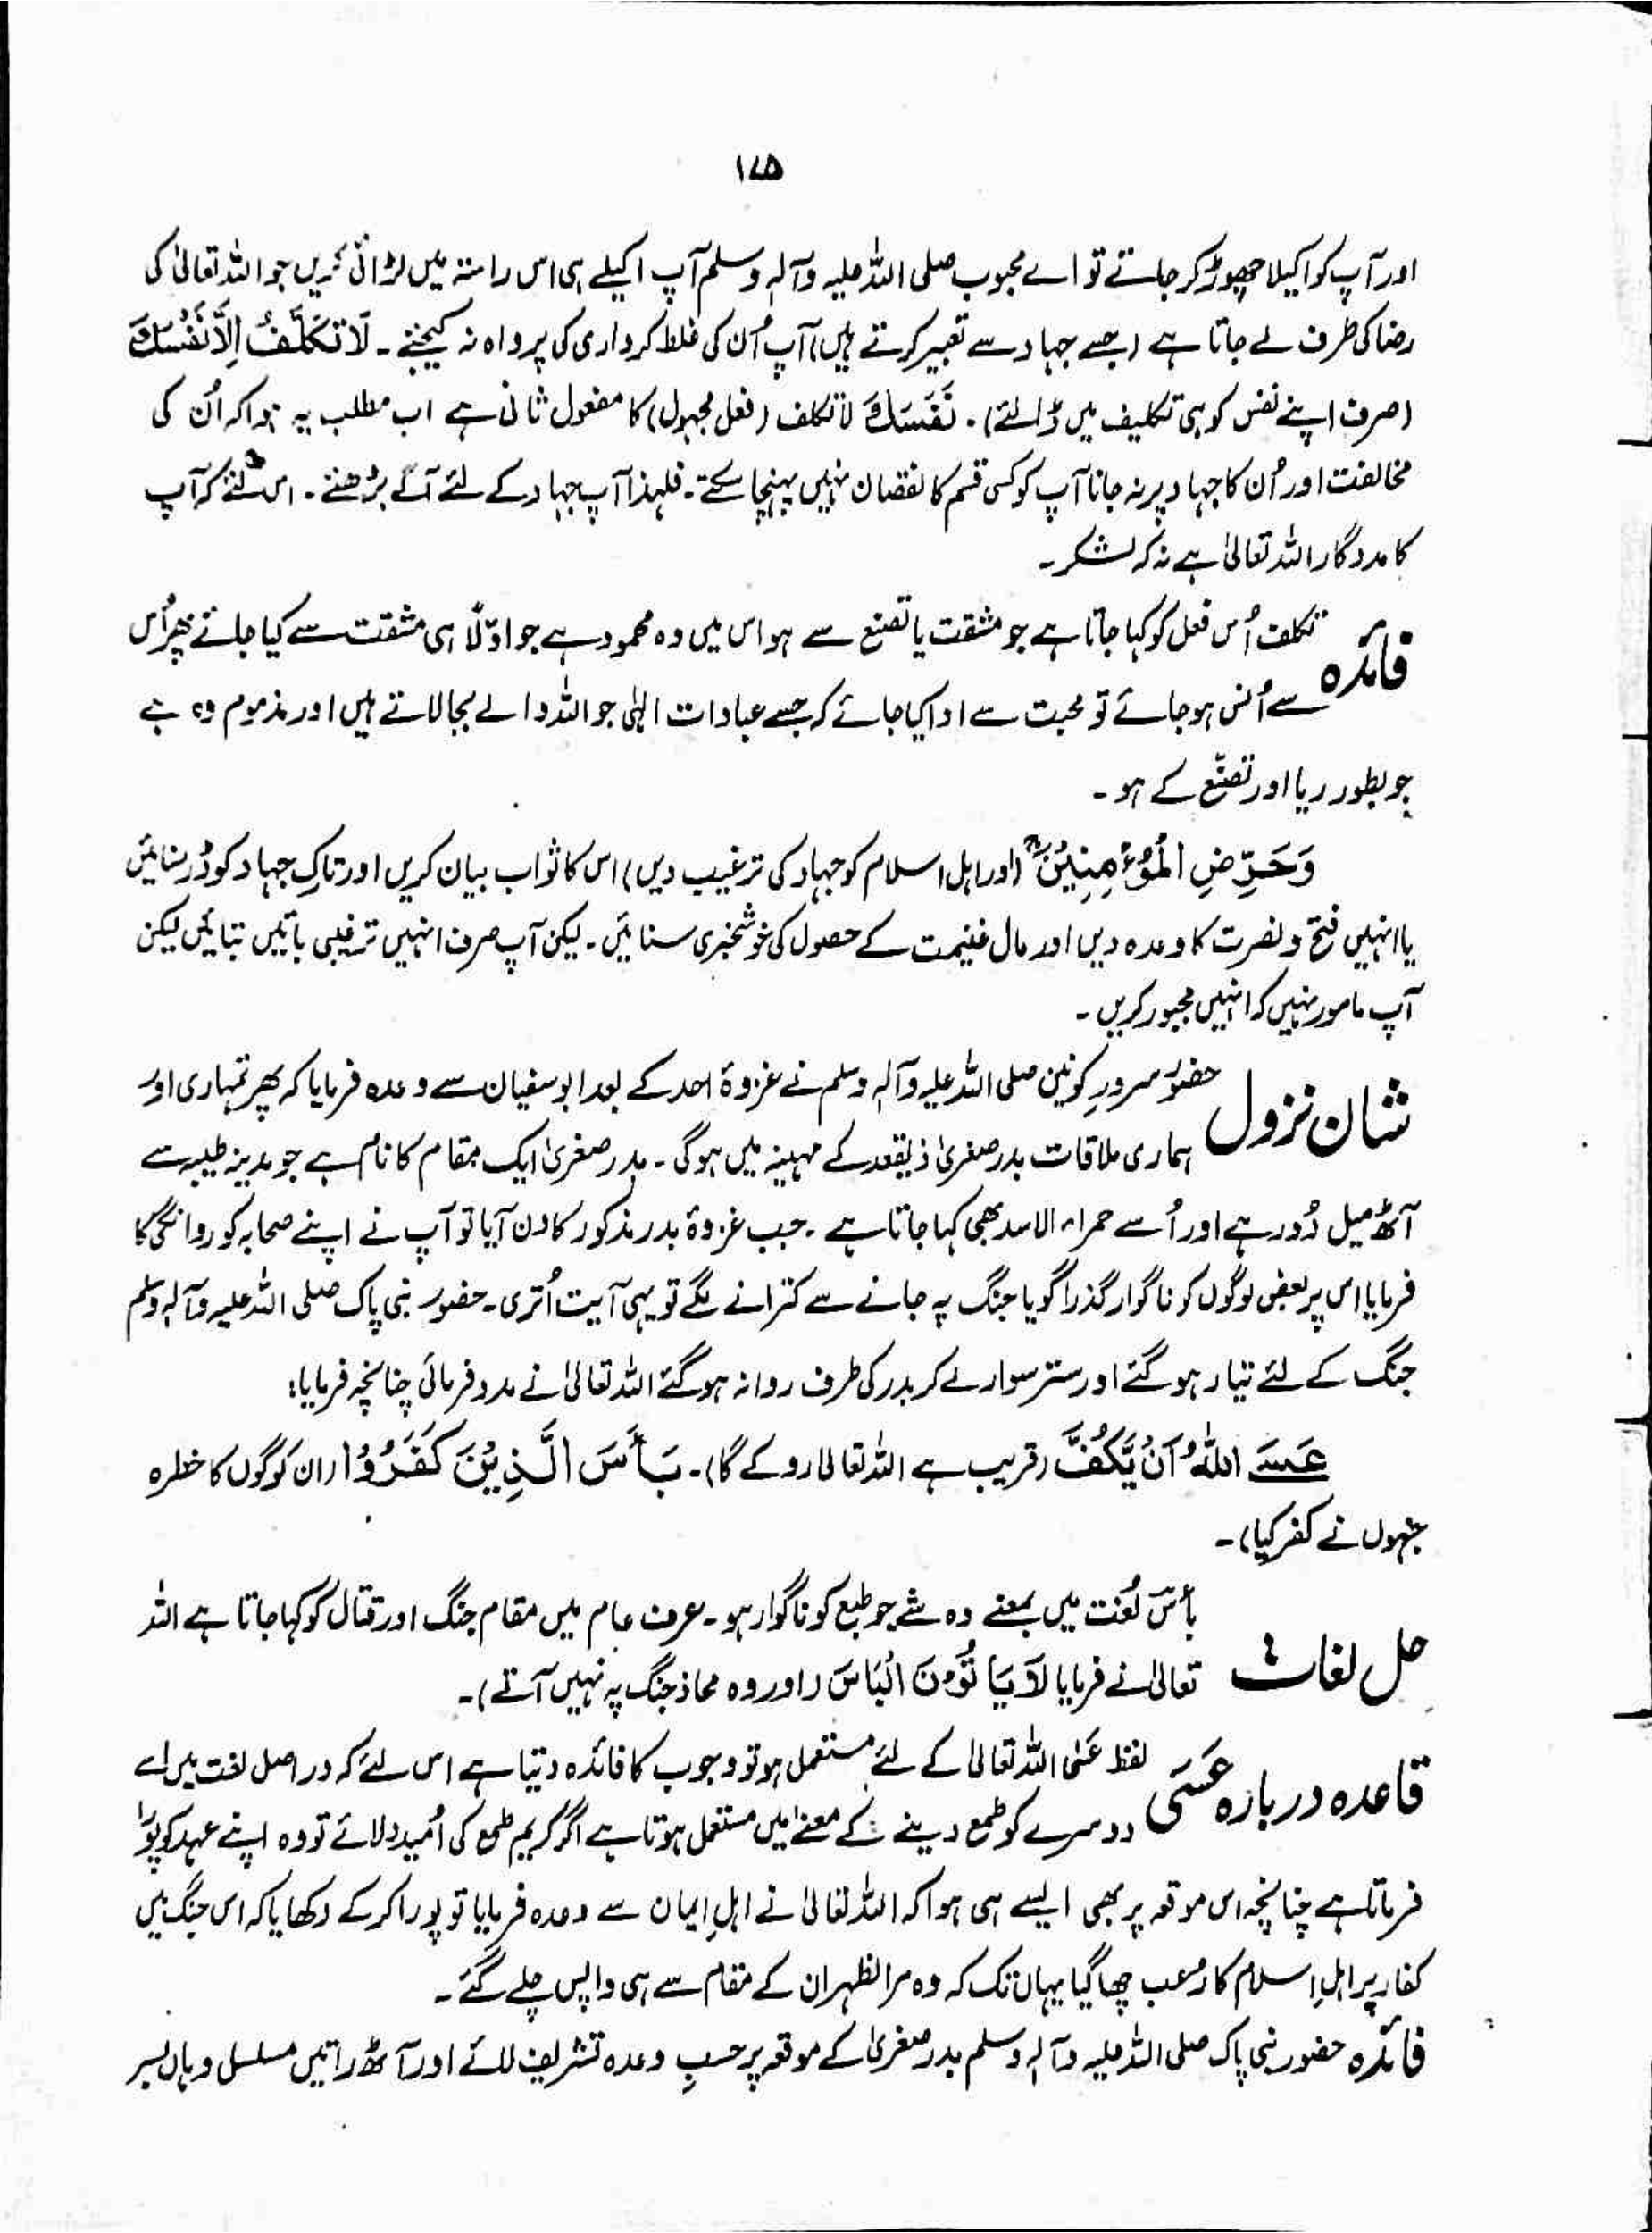 ۱۷۵
اور آپ کو اکیلا چھوڑ کر جاتے تو اے محبوب صلی اللہ علیہ وآلہٖ وسلم آپ اکیلے ہی اس راستہ میں لڑائی کریں جو اللہ تعالیٰ کی
رضا کی طرف لے جاتا ہے (جسے جہاد سے تعبیر کرتے ہیں) آپ اُن کی غلط کرداری کی پرواہ نہ کیجئے۔ لَا تُكَلَّفُ اِلَّا نَفْسَكَ
(صرف اپنے نفس کو ہی تکلیف میں ڈالئے)۔ نَفْسَكَ لا تکلف (فعل مجہول) کا مفعول ثانی ہے اب مطلب یہ ہوا کہ اُن کی
مخالفت اور اُن کا جہاد پر نہ جانا آپ کو کسی قسم کا نقصان نہیں پہنچا سکتے۔ فلہٰذا آپ جہاد کے لئے آگے بڑھئے۔ اس لئے کہ آپ
کا مددگار اللہ تعالیٰ ہے نہ کہ لشکر۔
فائدہ تکلف اُس فعل کو کہا جاتا ہے جو مشقت یا تصنع سے ہو اس میں وہ محمود ہے جو اوّلاً ہی مشقت سے کیا جائے پھر اُس
سے اُنس ہو جائے تو محبت سے ادا کیا جائے کہ جیسے عبادات الٰہی جو اللہ والے بجا لاتے ہیں اور مذموم وہ ہے
جو بطور ریا اور تصنّع کے ہو۔
وَحَرِّضِ الْمُؤْمِنِيْنَ (اور اہل اسلام کو جہاد کی ترغیب دیں) اس کا ثواب بیان کریں اور تارکِ جہاد کو ڈر سنائیں
یا انہیں فتح و نصرت کا وعدہ دیں اور مال غنیمت کے حصول کی خوشخبری سنائیں۔ لیکن آپ صرف انہیں ترغیبی باتیں بتائیں لیکن
آپ مامور نہیں کہ انہیں مجبور کریں۔
شان نزول حضور سرورِ کونین صلی اللہ علیہ وآلہٖ وسلم نے غزوۂ احد کے بعد ابوسفیان سے وعدہ فرمایا کہ پھر تمہاری اور
ہماری ملاقات بدر صغریٰ ذیقعد کے مہینہ میں ہوگی۔ بدر صغریٰ ایک مقام کا نام ہے جو مدینہ طیبہ سے
آٹھ میل دُور ہے اور اُسے حمراء الاسد بھی کہا جاتا ہے۔ جب غزوۂ بدر مذکور کا دن آیا تو آپ نے اپنے صحابہ کو روانگی کا
فرمایا اس پر بعض لوگوں کو ناگوار گذرا گویا جنگ پہ جانے سے کترانے لگے تو یہی آیت اُتری۔ حضور نبی پاک صلی اللہ علیہ وآلہٖ وسلم
جنگ کے لئے تیار ہو گئے اور ستر سوار لے کر بدر کی طرف روانہ ہو گئے اللہ تعالیٰ نے مدد فرمائی چنانچہ فرمایا:
عَسَى اللّٰهُ اَنْ يَّكُفَّ (قریب ہے اللہ تعالیٰ روکے گا)۔ بَأْسَ الَّذِيْنَ كَفَرُوْا (ان لوگوں کا خطرہ
جنہوں نے کفر کیا)۔
حل لغات بأسَ لُغت میں بمعنے وہ شے جو طبع کو ناگوار ہو۔ عرف عام میں مقام جنگ اور قتال کو کہا جاتا ہے اللہ
تعالیٰ نے فرمایا لَا يَأْتُوْنَ الْبَأْسَ (اور وہ محاذ جنگ پہ نہیں آتے)۔
قاعدہ دربارہ عَسَى لفظ عَسٰی اللہ تعالیٰ کے لئے مستعمل ہو تو وجوب کا فائدہ دیتا ہے اس لئے کہ در اصل لغت میں اسے
دوسرے کو طمع دینے کے معنے میں مستعمل ہوتا ہے اگر کریم طمع کی اُمید دلائے تو وہ اپنے عہد کو پورا
فرماتا ہے چنانچہ اس موقعہ پر بھی ایسے ہی ہوا کہ اللہ تعالیٰ نے اہلِ ایمان سے وعدہ فرمایا تو پورا کر کے دکھایا کہ اس جنگ میں
کفار پر اہلِ اسلام کا رُعب چھا گیا یہاں تک کہ وہ مر الظہران کے مقام سے ہی واپس چلے گئے۔
فائدہ حضور نبی پاک صلی اللہ علیہ وآلہٖ وسلم بدر صغریٰ کے موقعہ پر حسبِ وعدہ تشریف لائے اور آٹھ راتیں مسلسل وہاں بسر